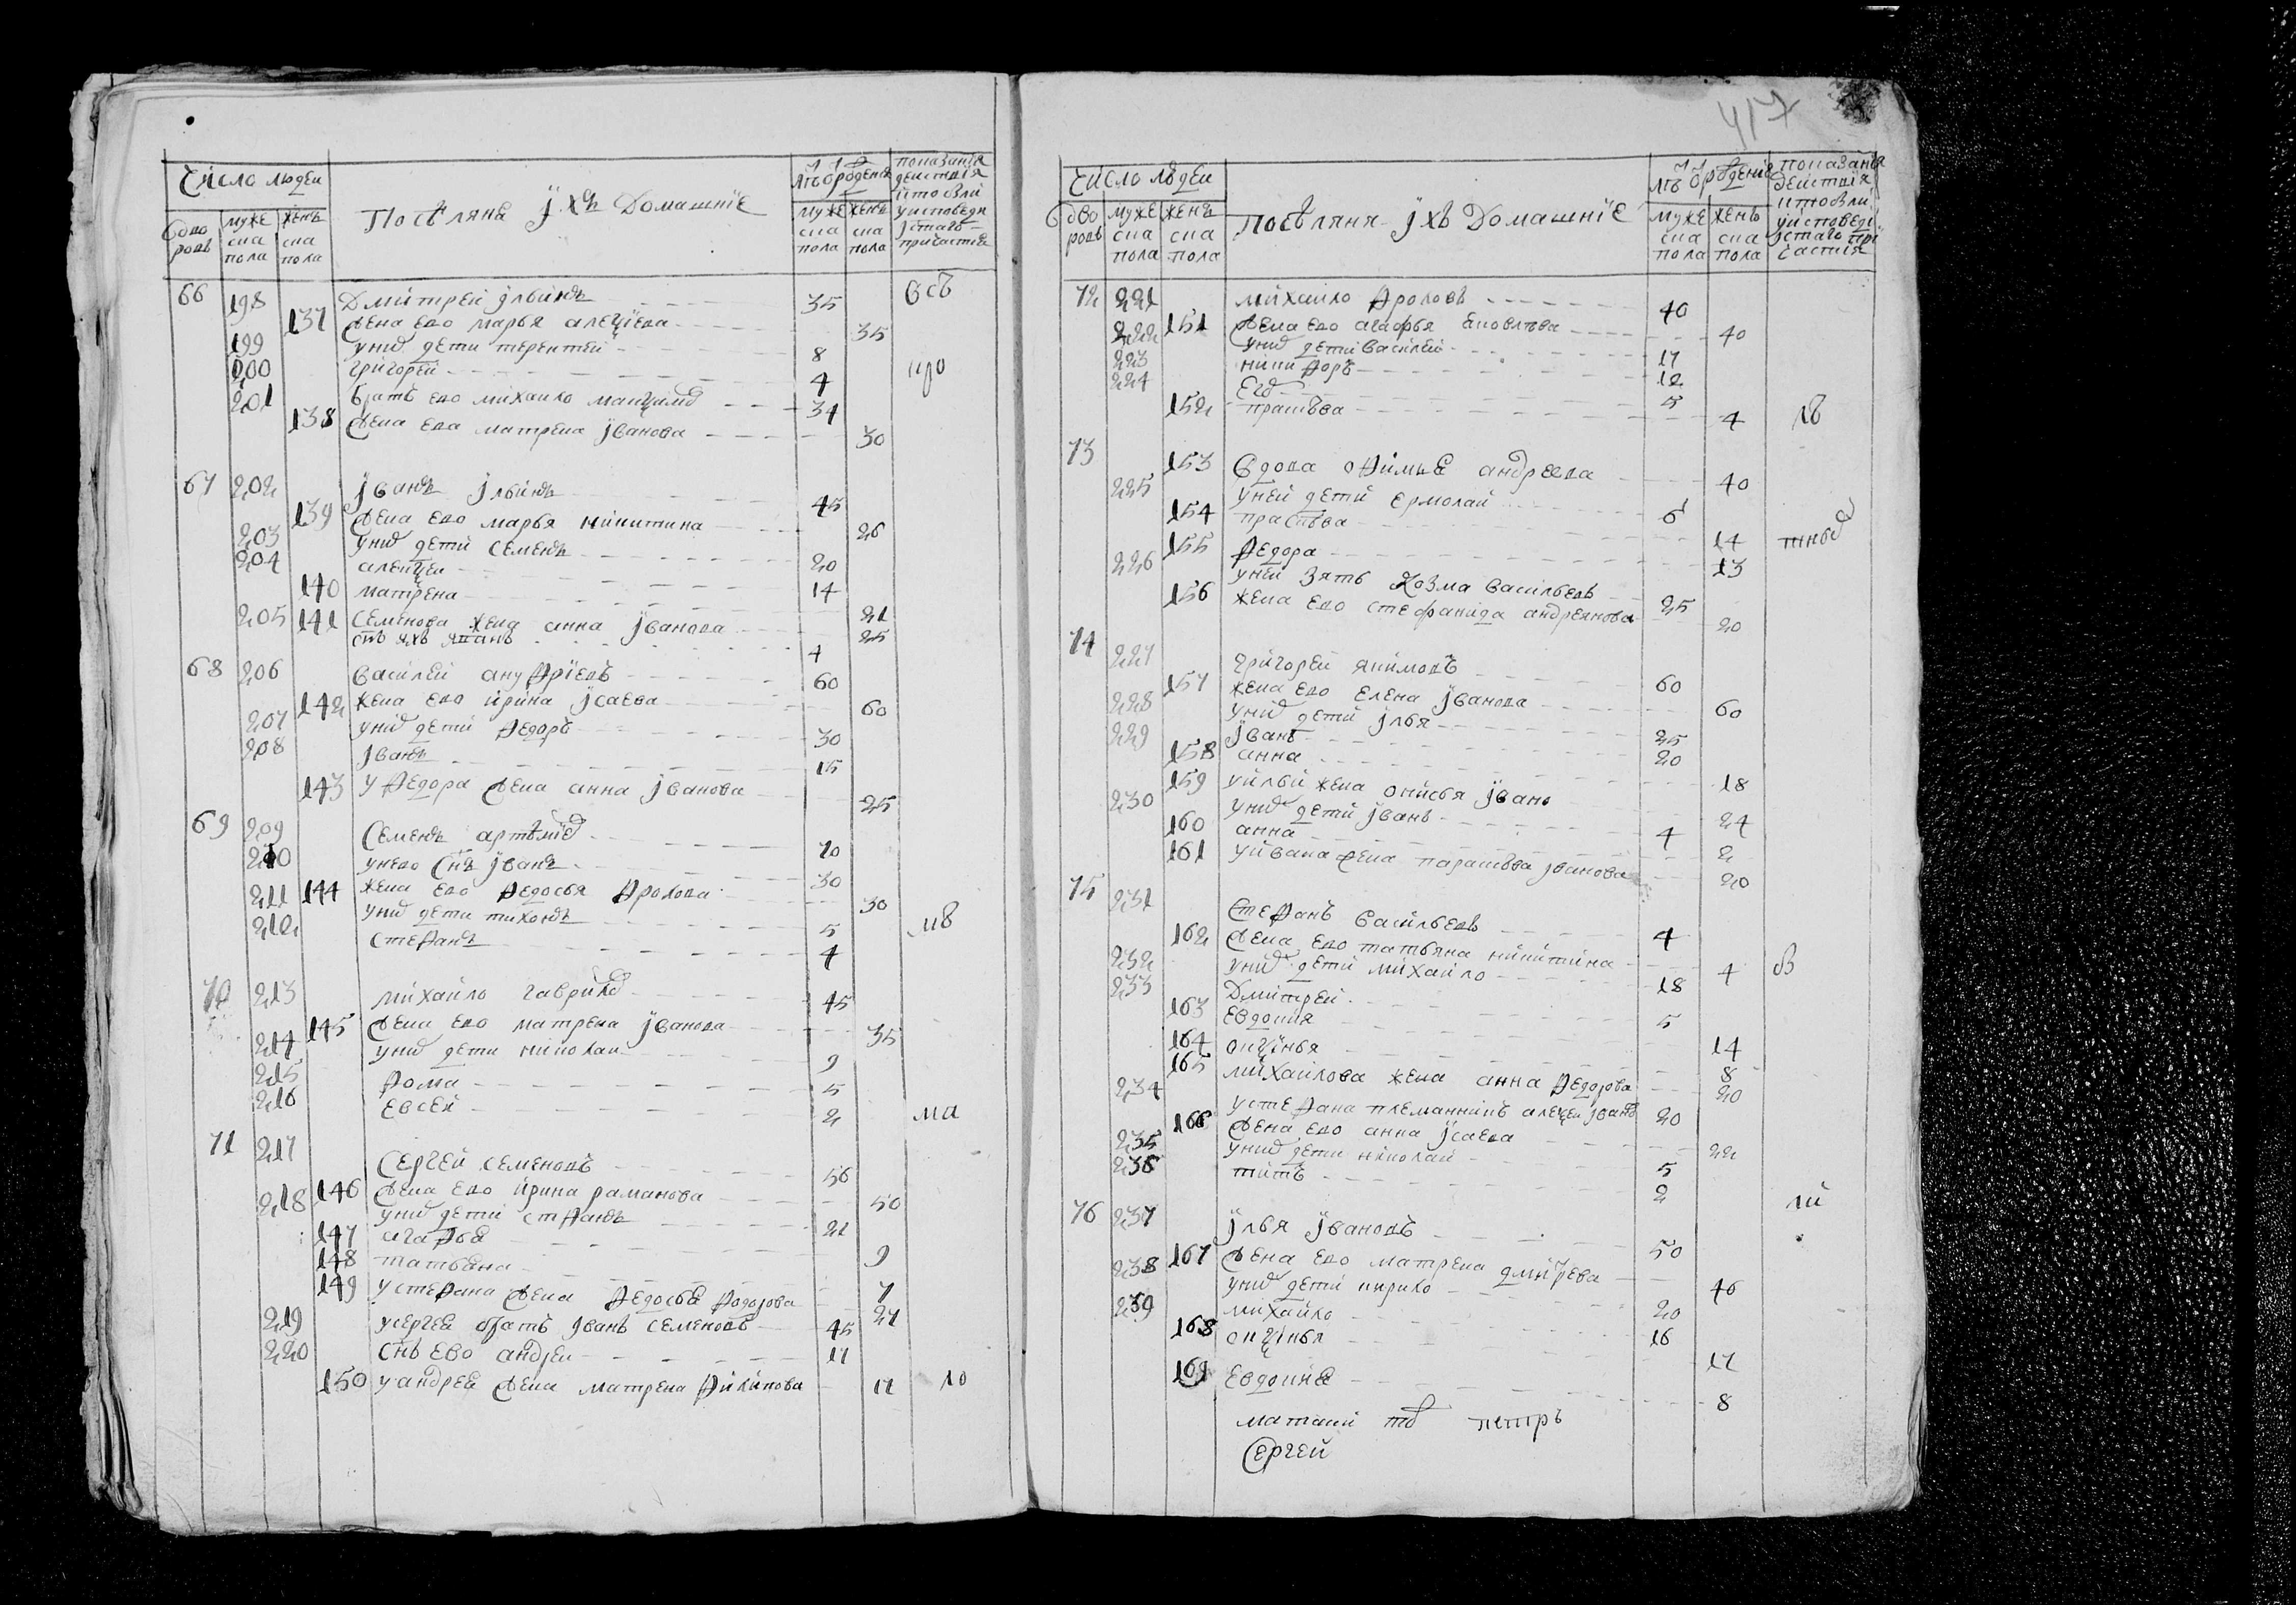 Число людеи
Посѣляне ихъ Домашніе
Лѣтъ ѿ рождения
показанія
двороовъ
муже
ска
пола
женъ
ска
пола
муже
ска
пола
женъ
ска
пола
66 198 Дмитреи ильинъ 35 всѣ
137 жена ево марья алеѯиева 35
199 унихъ дети терентеи 8
200 григореи 4
201 братъ ево михаило 34
138 жена ева матрена иванова 30
67 202 иванъ ильинъ 45
139 жена ево марья никитина 26
203 унихъ дети семенъ 20
204 алеѯеи 14
140 матрена 21
205 141 семенова жена анна иванова 25
снъ ихъ 4
68 206 василеи ануѳріевъ 60
142 жена ево ирина исаева 60
207 унихъ дети ѳедоръ 30
208 иванъ 15
143 у ѳедора жена анна иванова 25
69 209 семенъ артемїе 70
210 унево снъ иванъ 30
211 144 жена ево ѳедосья ѳролова 30
унихъ дети тихонъ 5
212 стеѳанъ 4
70 213 михаило гаврило 45
145 жена ево матрена иванова 35
214 унихъ дети николаи 9
215 ѳома 5
216 евсеи 2 ма
71 217 сергеи семеновъ 56
218 146 жена ево ирина раманова 50
унихъ дети стѳанъ 21
147 агаѳья 9
148 татьяна 7
149 устеѳана жена ѳедосья ѳодорова 21
219 усергея братъ иванъ семеновъ 45
220 снъ ево андреи 17
150 у андрея жена матрена ѳилипова 17 ло
417
Число людеи
Посѣляня ихъ Домашніе
Лѣтъ ѿ рождение
показаніи
двороовъ
муже
ска
пола
женъ
ска
пола
муже
ска
пола
женъ
ска
пола
72 221 михаило ѳроловъ 40
222 151 жена ево агаѳья яковлѣва 40
унихъ дети василеи 17
223 никиѳоръ 12
224 5
152 прасковя 4
73 153 вдова оѳимья андреева 40
225 унеи дети ермолаи 6
154 прасковя 14
155 ѳедора 13
226 унеи зять козма васильевъ 25
156 жена ево стефанида андреянова 20
74 227 григореи якимовъ 60
157 жена ево елена иванова 60
228 унихъ дети илья 25
229 иванъ 20
158 анна 18
159 уильи жена онисья иванъ 24
230 унихъ дети иванъ 4
160 анна 2
161 уивана жена парасковя иванова 20
75 231 стеѳанъ васильевъ 4
162 жена ево татьяна никитина 4
232 унихъ дети михаило 18
233 Дмитреи 5
163 евдокия 14
164 оѯинья 8
165 михаилова жена анна ѳедорова 20
234 устеѳана племянникъ алеѯеи иванъ 20
166 жена ево анна исаева 22
235 унихъ дети николаи 5
238 титъ 2
76 237 илья ивановъ 50
167 жена ево матрена дмитрева 40
238 унихъ дети кирило 20
239 михаило 16
168 оѯинья 17
169 евдокия 8
петръ
Сергеи